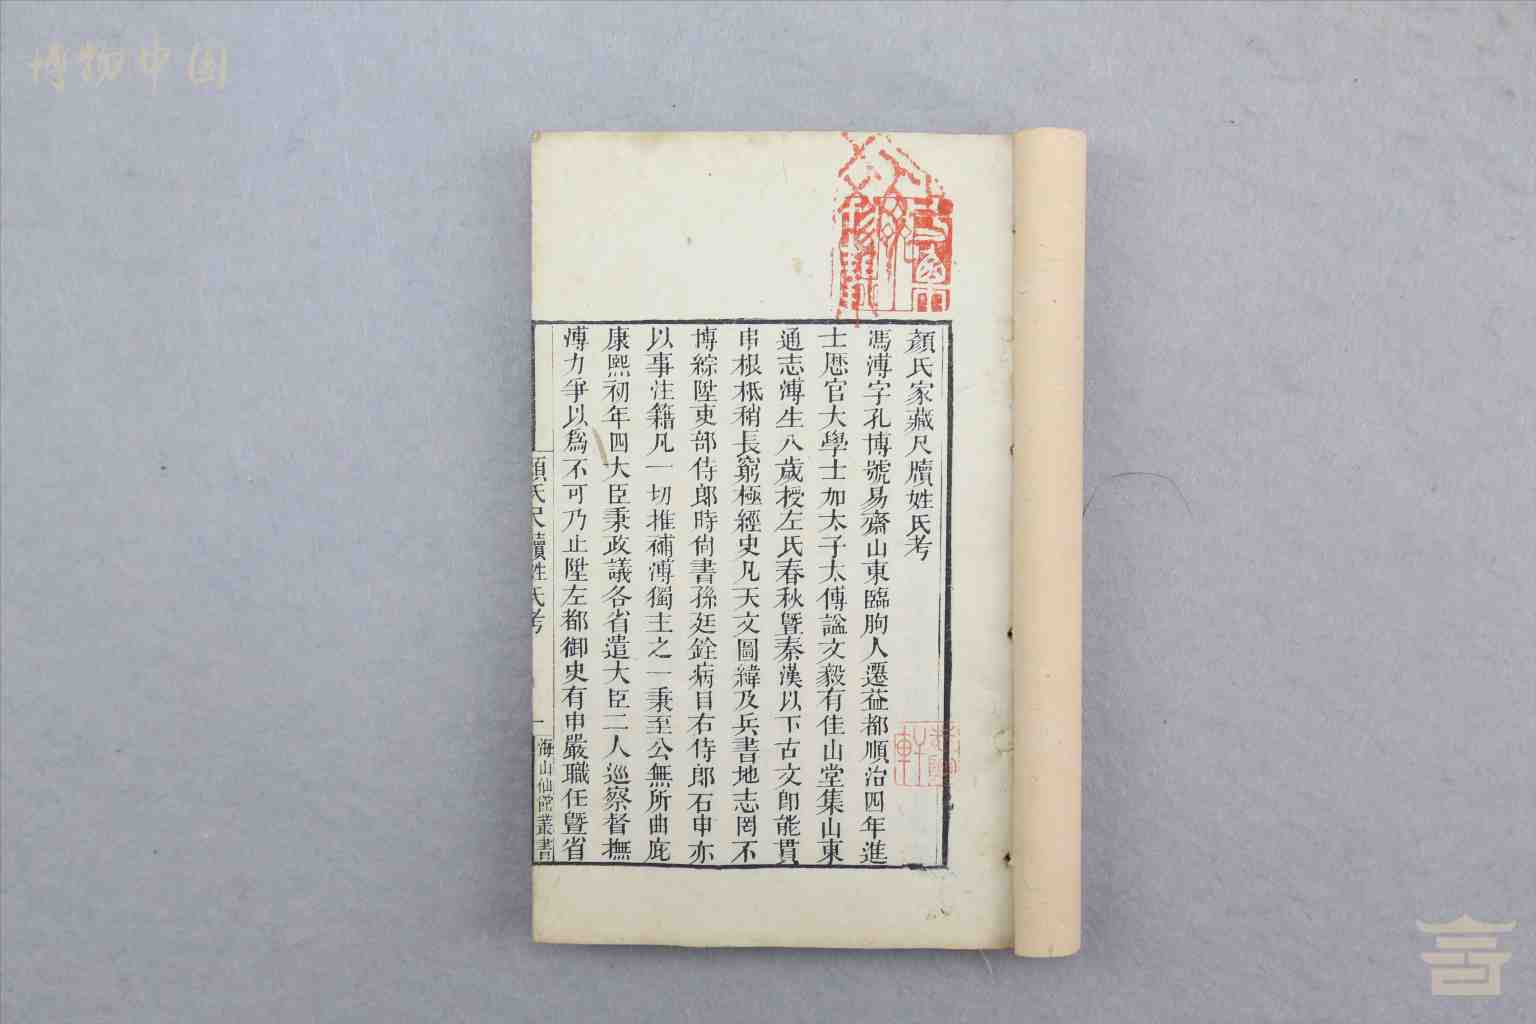 博物中国
顏氏家藏尺牘姓氏考
馮溥字孔博號易齋山東臨朐人遷益都順治四年進
士歴官大學士加太子太傅諡文毅有佳山堂集山東
通志溥生八歲授左氏春秋曁秦漢以下古文卽能貫
串根柢稍長窮極經史凡天文圖緯及兵書地志罔不
博綜陞吏部侍郞時尙書孫廷銓病目右侍郞石申亦
以事注籍凡一切推補溥獨主之一秉至公無所曲庇
康熙初年四大臣秉政議各省遣大臣二人巡察督撫
溥力爭以爲不可乃止陞左都御史有申嚴職任曁省
顏氏尺牘姓氏考
一
海山仙館叢書